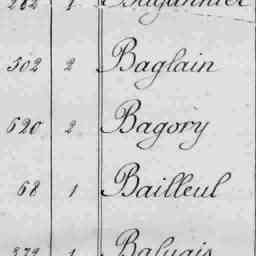 262 1 Bagannier
502 2 Baglain
620 2 Bagory
68 1 Bailleul
272 1 Baluais